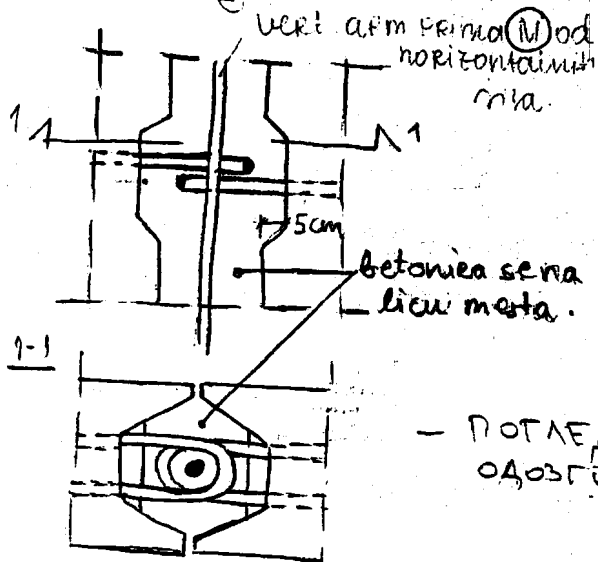 vert arm prima M od
horizontalnih
sila.
1 1
5cm
betonira se na
licu mesta.
1-1
— ПОГЛЕД
ОДОЗГ